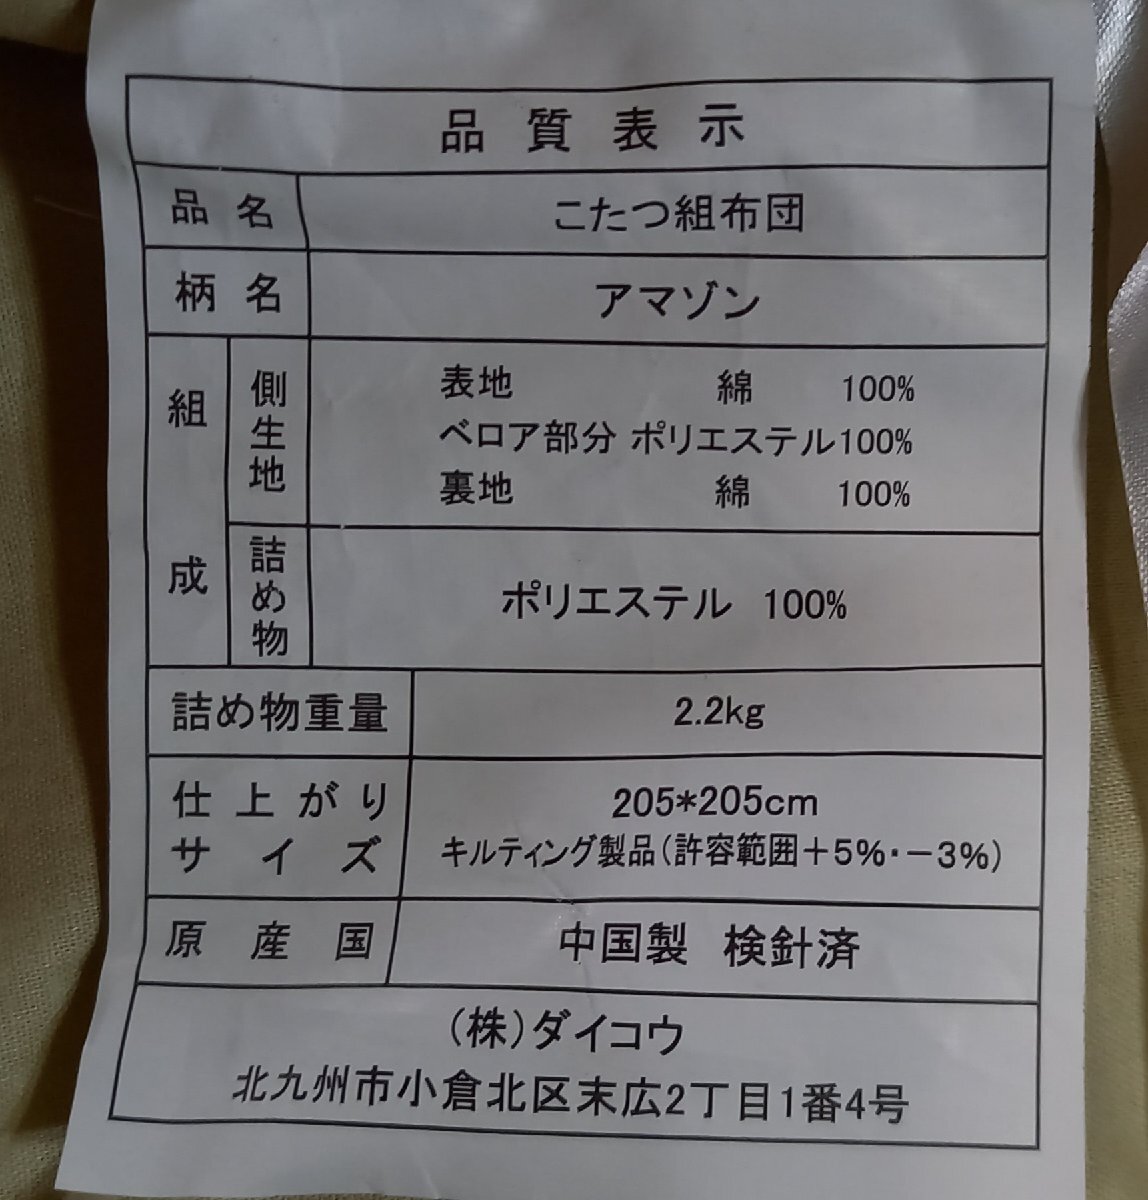 品質表示
品名 こたつ組布団
柄名 アマゾン
組成 側生地 表地 綿 100%
ベロア部分 ポリエステル100%
裏地 綿 100%
詰め物 ポリエステル 100%
詰め物重量 2.2kg
仕上がりサイズ 205*205cm
キルティング製品(許容範囲+5%・-3%)
原産国 中国製 検針済
(株)ダイコウ
北九州市小倉北区末広2丁目1番4号